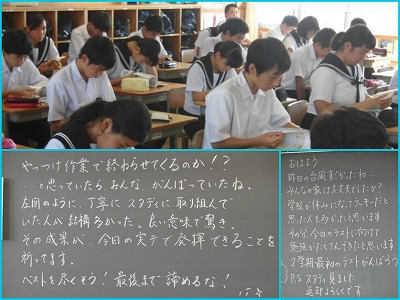 やっつけ作業で終わらせてくるのか!?
…と思っていたら、みんな、がんばっていたね。
左図のように、丁寧にスタディに取り組んで
いた人が結構多かった。良い意味で驚き。
その成果が、今日の実テで発揮できることを
祈ってます。
ベストを尽くそう!最後まで諦めるな!
おはよう
昨日の台風すごかったね…
みんなの家は大丈夫でしたか?
学校が休みになって、ラッキーだと
思った人も多かったと思います
その分、今日のテストに向けて
勉強がたくさんできたと思います
2学期最初のテストがんばろう
P.S スタディ見ました
返却よろしくです。